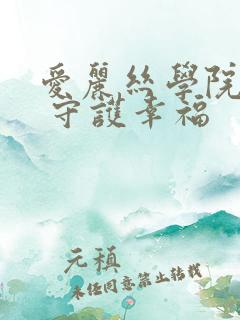 愛麗絲學院
守護幸福
元稹
未经同意禁止转载